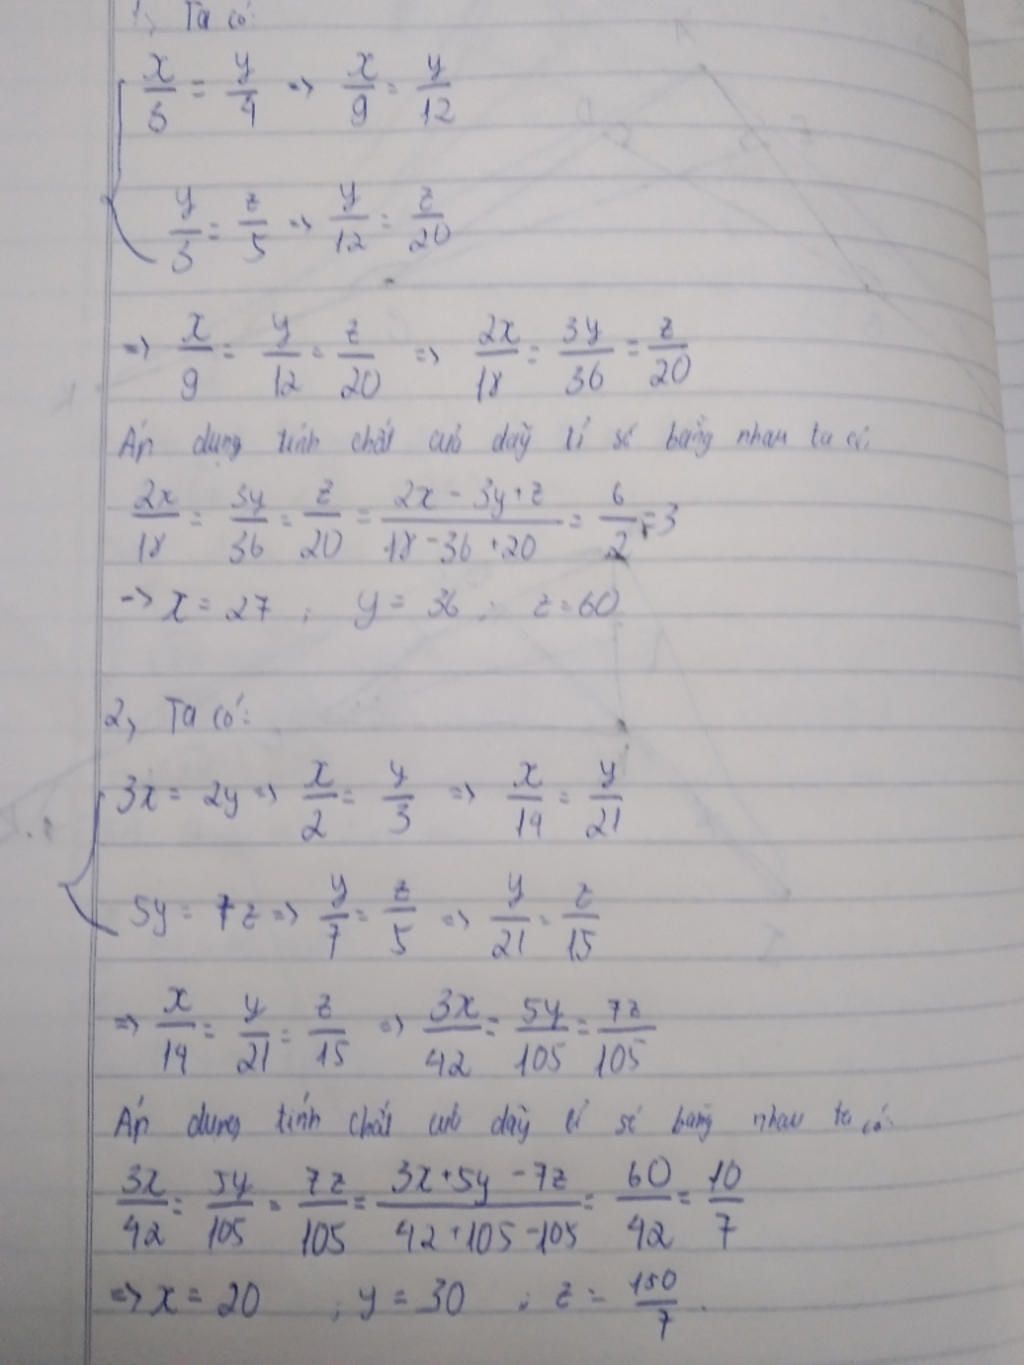 1, Ta có:
x/3 = y/4 => x/9 = y/12
y/3 = z/5 => y/12 = z/20
=> x/9 = y/12 = z/20 => 2x/18 = 3y/36 = z/20
Áp dụng tính chất của dãy tỉ số bằng nhau ta có:
2x/18 = 3y/36 = z/20 = (2x - 3y + z)/(18 - 36 + 20) = 6/2 = 3
-> x = 27 ; y = 36 ; z = 60
2, Ta có:
3x = 2y => x/2 = y/3 => x/14 = y/21
5y = 7z => y/7 = z/5 => y/21 = z/15
=> x/14 = y/21 = z/15 => 3x/42 = 5y/105 = 7z/105
Áp dụng tính chất của dãy tỉ số bằng nhau ta có:
3x/42 = 5y/105 = 7z/105 = (3x + 5y - 7z)/(42 + 105 - 105) = 60/42 = 10/7
=> x = 20 ; y = 30 ; z = 150/7.